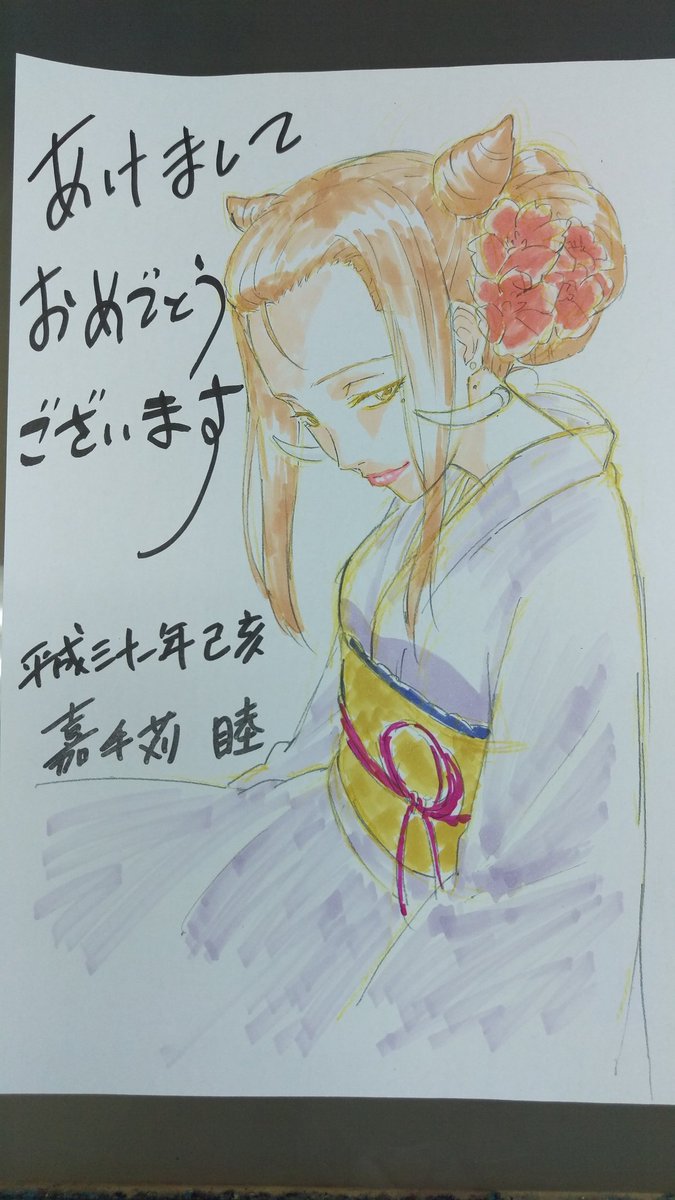 あけまして
おめでとう
ございます
平成三十一年己亥
嘉手苅 睦